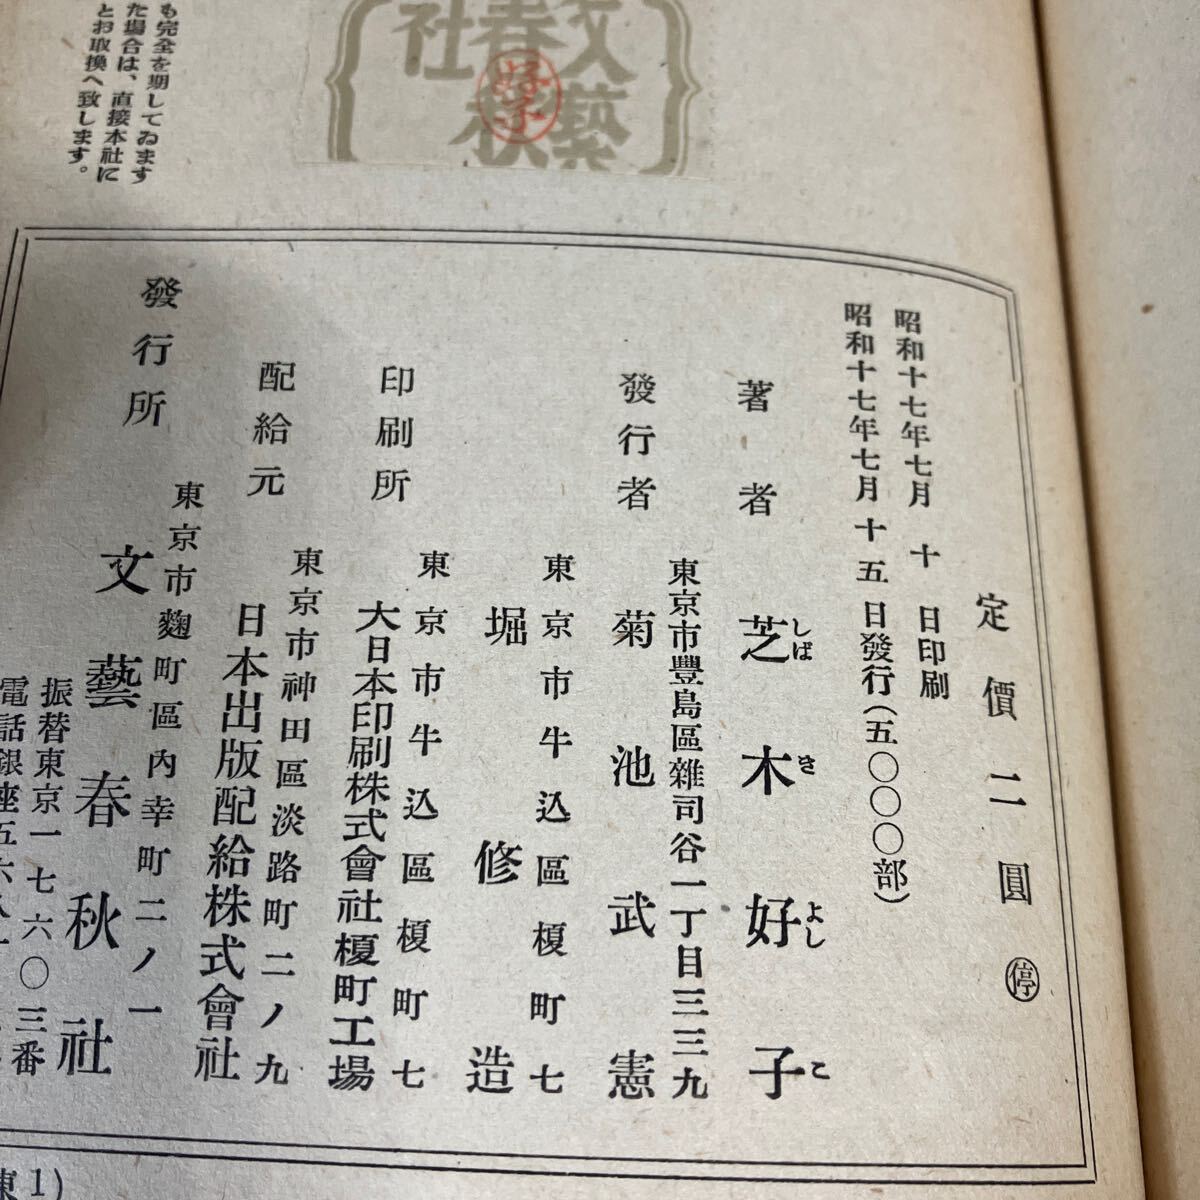 文藝
春秋
社
好子
も完全を期してゐます
た場合は、直接本社に
とお取換へ致します。
定價二圓 停
昭和十七年七月十日印刷
昭和十七年七月十五日發行(五〇〇〇部)
著者 芝木好子
しば き よし こ
東京市豐島區雜司谷一丁目三三九
發行者 菊池武憲
東京市牛込區榎町七
堀修造
東京市牛込區榎町七
印刷所 大日本印刷株式會社榎町工場
東京市神田區淡路町二ノ九
配給元 日本出版配給株式會社
東京市麴町區內幸町二ノ一
發行所 文藝春秋社
振替東京一七六〇三番
電話銀座五六
東1)